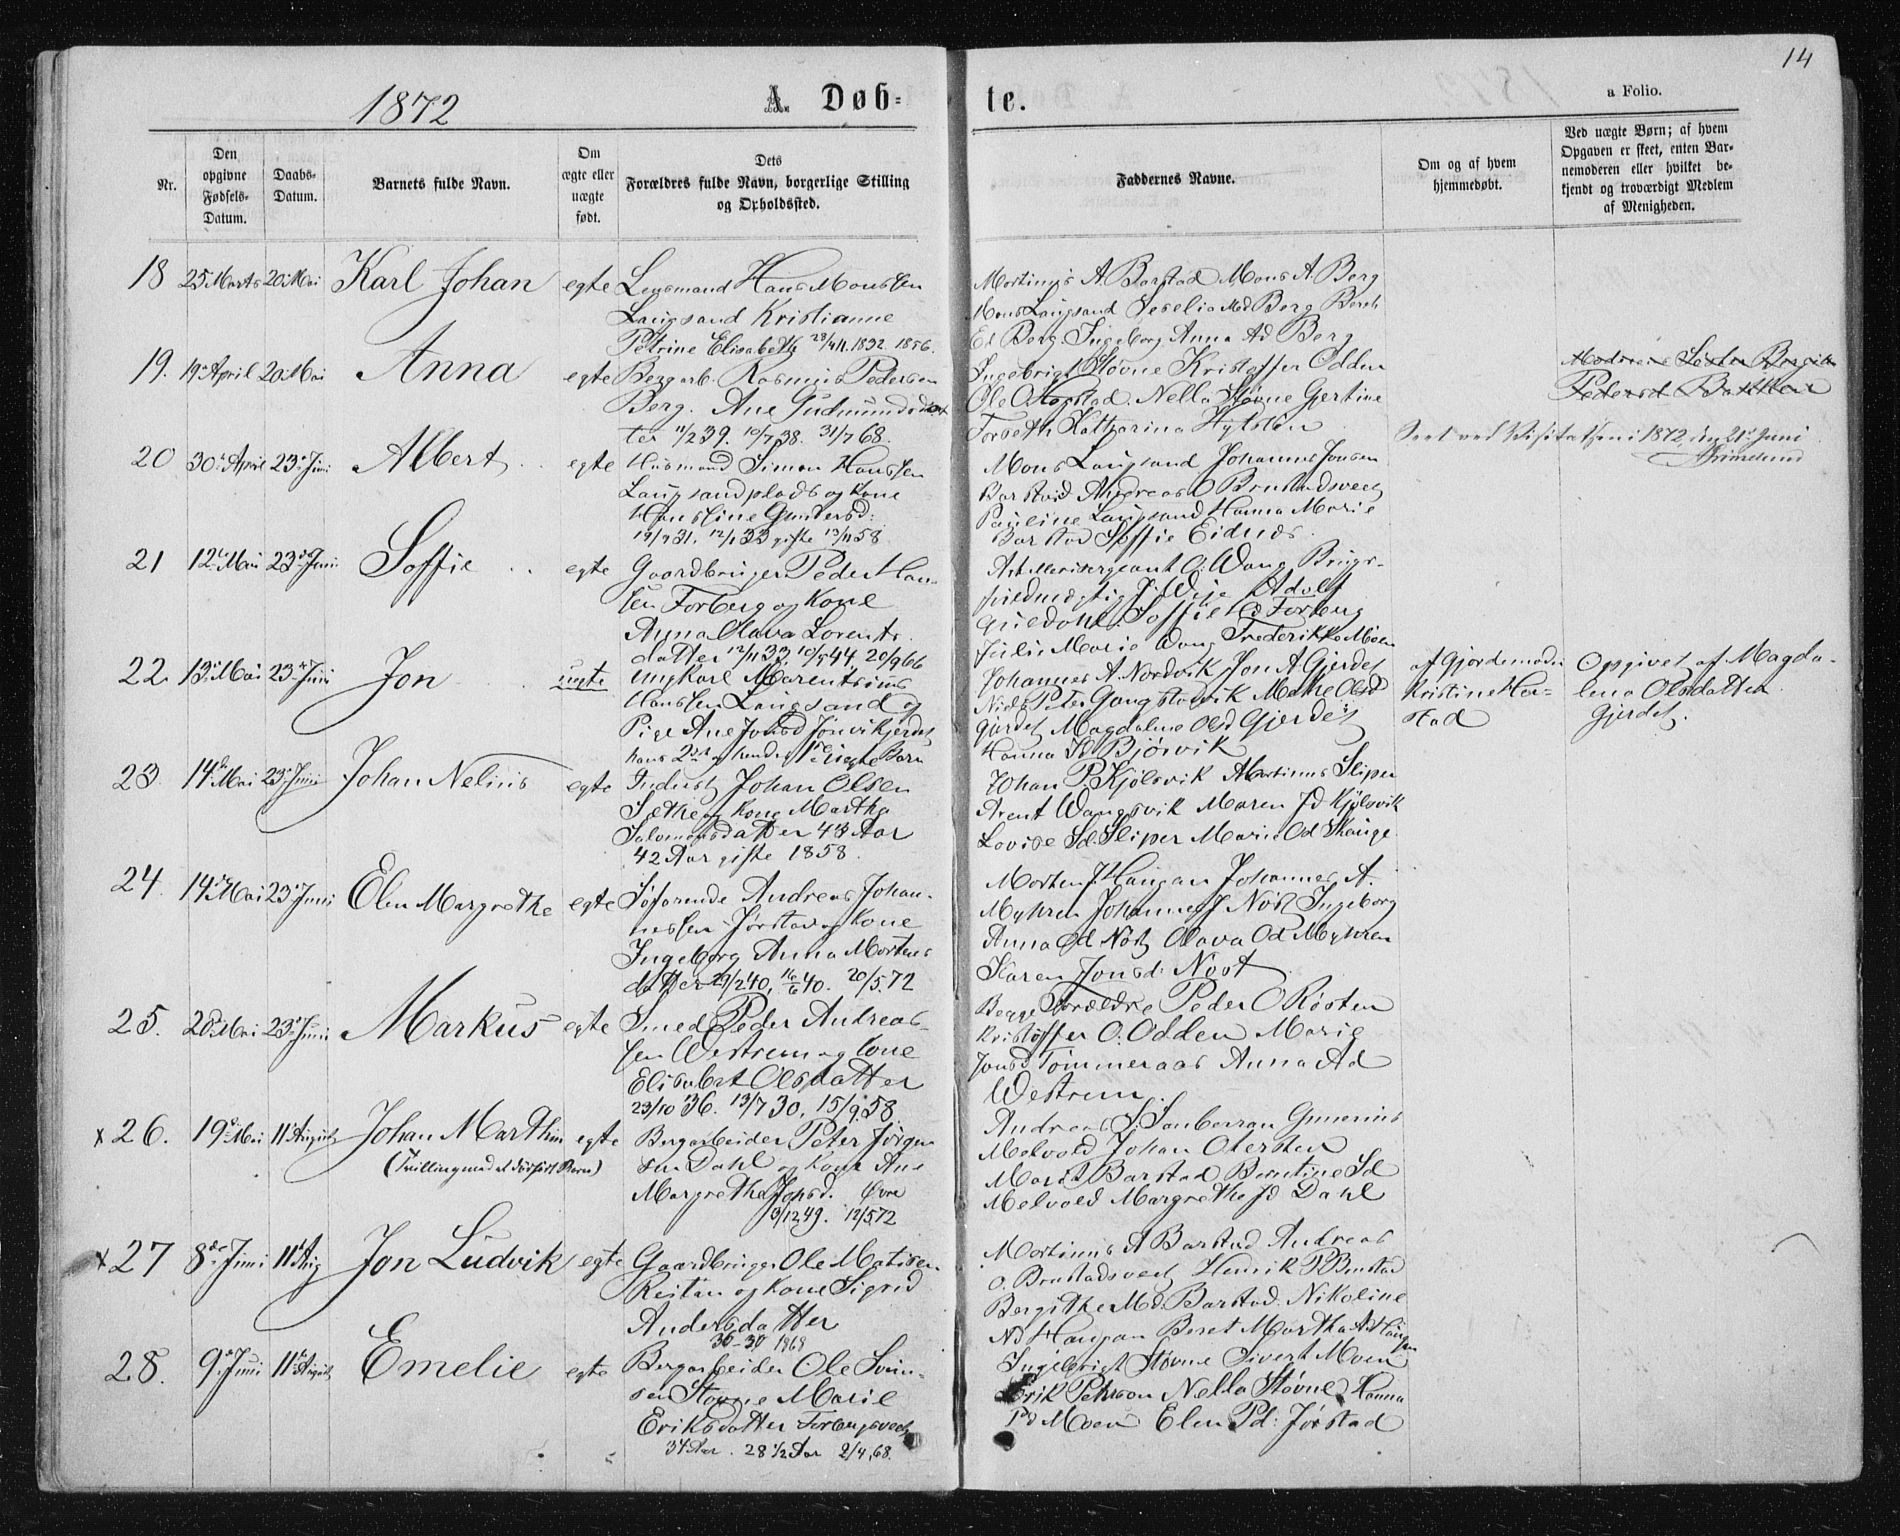 14
1872
A. Døb-
te.
a Folio.
Nr.
Den
opgivne
Fødsels-
Datum.
Daabs-
Datum.
Barnets fulde Navn.
Om
ægte eller
uægte
født.
Dets
Forældres fulde Navn, borgerlige Stilling
og Opholdssted.
Faddernes Navne.
Om og af hvem
hjemmedøbt.
Ved uægte Børn; af hvem
Opgaven er skeet, enten Bar-
nemoderen eller hvilket be-
kjendt og troværdigt Medlem
af Menigheden.
18 25 Marts 20 Mai Karl Johan egte Lensmand Hans Monssen
Langsand Kristianne
Petrine Elisabeth 1832. 1856.
Martinus A. Barstad Mons A. Berg
Mons Langsand Berg Beret
Ed Berg Ingeborg Anna Ad Berg
19. 19 April 20 Mai Anna egte Bergarb. Rasmus Pedersen
Berg. Ane Gudmundsdat
ter 11/2 39. 10/7 38. 31/7 68.
Ingebrigt Støvne Kristoffer Odden
Ole Opstad. Nella Støvne Gertine
Forseth Katharina
Moderens Søster
Pedersd
Seet ved Visitatsen i 1872 den 21de Juni
Grimelund
20 30 April 23 Juni Albert egte Husmand Simon Hanssen
Langsandplads og Kone
Hansline Gundersd:
19/9 31. 12/1 33 gifte 13/11 58
Mons Langsand Johannes Jonsen
Barstvid Andreas O Brustadsveet
Pauline Langsand Hanna Marie
Barstad Soffie Eidnes.
21 12 Mai 23 Juni Soffie egte Gaardbruger Peder Han-
sen Forberg og Kone
Anna Olava Lorents-
datter 12/11 33. 10/5 44. 20/9 66
Artillerisergeant O. Wang Brugs-
fuldmægtig J. Weje Adolf
Soffie Forberg
Julie Marie Wang Frederikke Moen
22. 13 Mai 23 Juni Jon uegte Ungkarl Marentsius
Hanssen Langsand og
Pige Ane Jonsd
hans 2det og hendes uegte Barn
Johannes A. Nordvik Jon A Gjerdet
Niels Peter Gangstadvik Mette Olsd
Gjerdet Magdalene Olsd Gjerdet
Hanna Bjørvik
af Gjordemoder
Kristine Har-
stad
Opgivet af Magda-
lena Olsdatter
Gjerdet.
23. 14 Mai 23 Juni Johan Nelius egte Inderst Johan Olsen
Sæther og Kone Martha
Salomonsdatter 43 Aar
42 Aar gifte 1858.
Johan P. Kjølsvik Martinus Sliper
Arent Wangsvik Maren Jd Kjølsvik
Lovise Sd. Sliper Marie Od Skauge
24. 14 Mai 23 Juni Elen Margrethe egte Søfarende Andreas Johan-
nessen Jørstad og Kone
Ingeborg Anna Mortens
datter 29/2 40, 16/6 40. 20/5. 72
Morten J. Haugan Johannes A.
Myhren Johannes J Nøst Ingeborg
Anna Od Nøst Olava Od Myhren
Karen Jonsd: Nøst
25. 20 Mai 23 Juni Markus egte Smed Peder Andreas-
sen Westrum og Kone
Elisabet Olsdatter
23/10 36. 13/7 30. 15/9 58.
Begge Forældre Peder O Røsten
Kristoffer O. Odden Marie
Jonsd Tømmeraas Anna Ad
Westrum
x 26. 19 Mai 11 August Johan Marthin egte Bergarbeider Peter Jørgen
(Tvilling med et dødfødt Barn)
sen Dahl og Kone Ane
Margrethe Jonsd. Øvre
3/12 49. 12/5 72
Andreas J. Gunerius
Melvold Johan Olersten
Marit Barstad Berntine Sd
Melvold Margrethe Jd Dahl
x 27 8de Juni 11 Aug Jon Ludvik egte Gaardbruger Ole Matisen
Reitan og Kone Sigrid
Andersdatter
36–30 1868
Martinus A Barstad Andreas
O. Brustadsveet Henrik P Brustad
Bergithe Md. Barstad. Nikoline
Ad Haugan Beret Martha Ad Haugan
28. 9 Juni 11 August Emelie egte Bergarbeider Ole Svin-
sen Støvne Marie
Eriksdatter Forbergsveet
34 Aar. 28 1/2 Aar 2/4, 68.
Ingebrigt Støvne Sivert Moen
Erik Pehrson Nella Støvne Hanna
Pd Moen Elen Pd: Jørstad